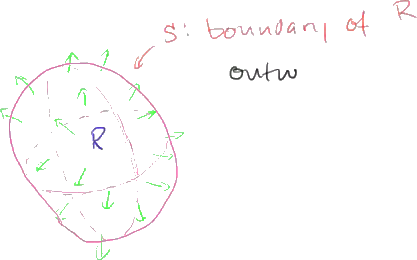 S: boundary of R
outw
R